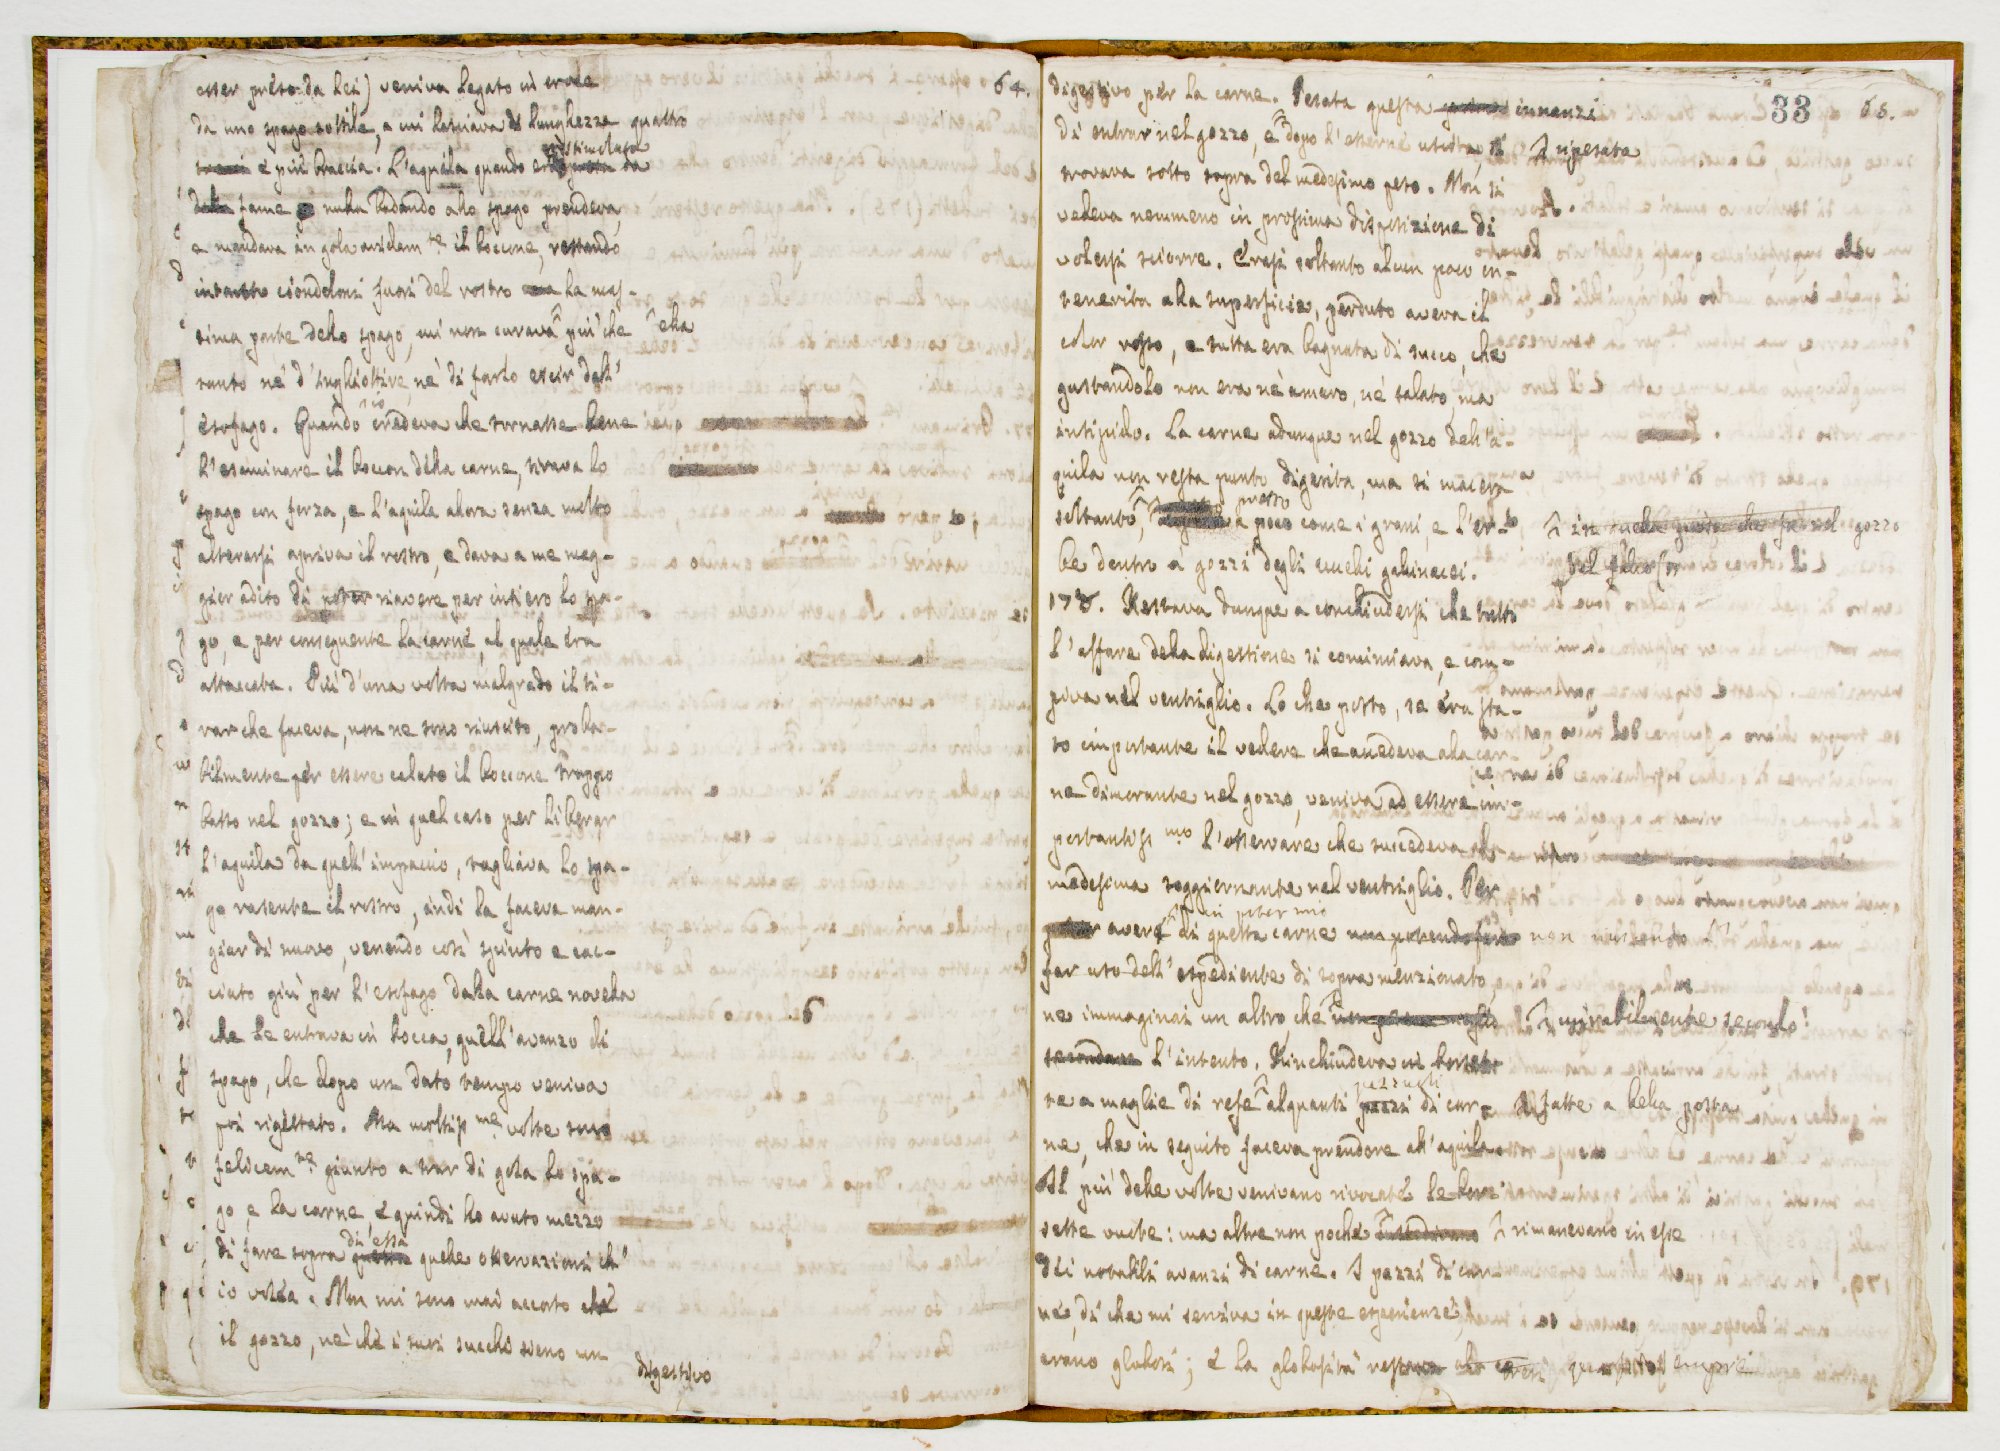 64.
esser preso da lei) veniva legato in croce
da uno spago sottile, a cui lasciava di lunghezza quattro
e più braccia. L'aquila quando era stimolata da
fame nulla badando allo spago prendeva,
e mandava in gola avidam.te il boccone, restando
intanto ciondoloni fuori del rostro la mas-
sima parte dello spago, cui non curava ^ più che ^ ella
tanto nè d'inghiottire, nè di farlo escir dall'
esofago. Quando io credeva che tornasse bene
l'esaminare il boccon della carne, tirava lo
spago con forza, e l'aquila allora senza molto
alterarsi apriva il rostro, e dava a me mag-
gior adito di poter riavere per intiero lo spa-
go, e per conseguente la carne, al quale era
attaccata. Più d'una volta malgrado il ti-
rar che faceva, non ne sono riuscito, probabi-
bilmente per essere calato il boccone troppo
basso nel gozzo; e in quel caso per liberar
l'aquila da quell'impaccio, tagliava lo spa-
go rasente il rostro, indi la faceva man-
giar di nuovo, venendo così spinto e cac-
ciato giù per l'esofago dalla carne novella
che le entrava in bocca, quell'avanzo di
spago, che dopo un dato tempo veniva
poi rigettato. Ma moltiss.me volte sono
felicem.te giunto a trar di gola lo spa-
go, e la carne, e quindi ho avuto mezzo
di fare sopra di essa quelle osservazioni ch'
io volea. Non mi sono mai accorto che
il gozzo, nè che i suoi succhi sieno un
digestivo
33 65.
digestivo per la carne. Pesata questa innanzi
di entrar nel gozzo, e dopo l'esserne uscita ^ ripesata si
trovava sotto sopra del medesimo peso. Non si
vedeva nemmeno in prossima disposizione di
volersi sciorre. Erasi soltanto alcun poco in-
tenerita alla superficie, perduto aveva il
color rosso, e tutta era bagnata di succo, che
gustandolo non era nè amaro, nè salato, ma
insipido. La carne adunque nel gozzo dell'a-
quila non resta punto digerita, ma si macera
soltanto, ^ a presso a poco come i grani, e l'er-
be dentro a' gozzi degli uccelli gallinacei.
178. Restava dunque a conchiudersi che tutto
l'affare della digestione si cominciava, e com-
piva nel ventriglio. Lo che posto, se era sta-
to importante il vedere che accadeva alla car-
ne dimorante nel gozzo, veniva ad essere im-
portantiss.mo l'osservare che succedeva alla
medesima soggiornante nel ventriglio. Per
avere in poter mio di questa carne non
far uso dell'espediente di sopra menzionato,
ne immaginai un altro che ^ mirabilmente secondò
l'intento. Rinchiudeva in borset-
te a maglie di refe ^ fatte a bella posta alquanti pezzuoli di car-
ne, che in seguito faceva prendere all'aquila.
Il più delle volte venivano rivocate le bor-
sette vuote: ma altre non poche ^ rimanevano in esse
dei notabili avanzi di carne. I pezzi di car-
ne, di che mi serviva in queste esperienze,
erano globosi; e la globosità